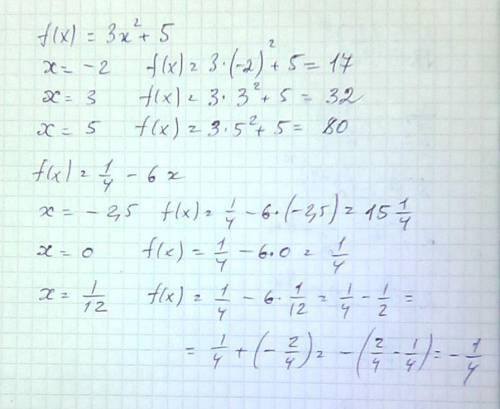 f(x) = 3x² + 5
x = -2 f(x) = 3·(-2)² + 5 = 17
x = 3 f(x) = 3·3² + 5 = 32
x = 5 f(x) = 3·5² + 5 = 80
f(x) = 1/4 - 6x
x = -2,5 f(x) = 1/4 - 6·(-2,5) = 15 1/4
x = 0 f(x) = 1/4 - 6·0 = 1/4
x = 1/12 f(x) = 1/4 - 6·1/12 = 1/4 - 1/2 =
= 1/4 + (-2/4) = -(2/4 - 1/4) = -1/4